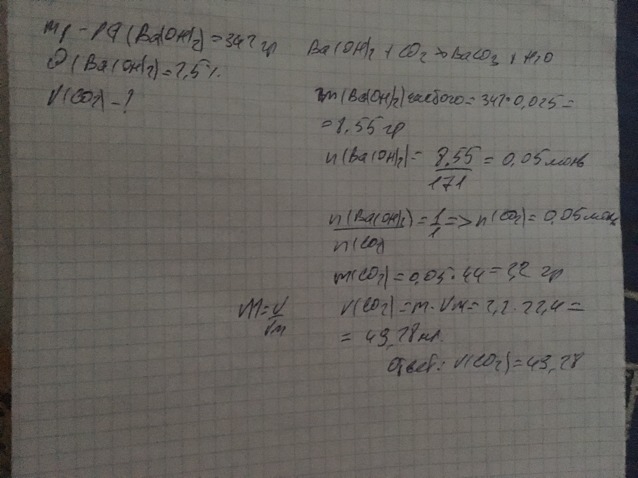 mр-ра (Ba(OH)2) = 342 гр
ω (Ba(OH)2) = 2,5%
V(CO2) - ?
Ba(OH)2 + CO2 → BaCO3 + H2O
m(Ba(OH)2) = 342·0,025 =
= 8,55 гр
n(Ba(OH)2) = 8,55/171 = 0,05 моль
n(Ba(OH)2)/n(CO2) = 1/1 => n(CO2) = 0,05 моль
m(CO2) = 0,05·44 = 2,2 гр
M = V/Vm
V(CO2) = m·Vm = 2,2·22,4 =
= 49,28 мл.
Ответ: V(CO2) = 49,28